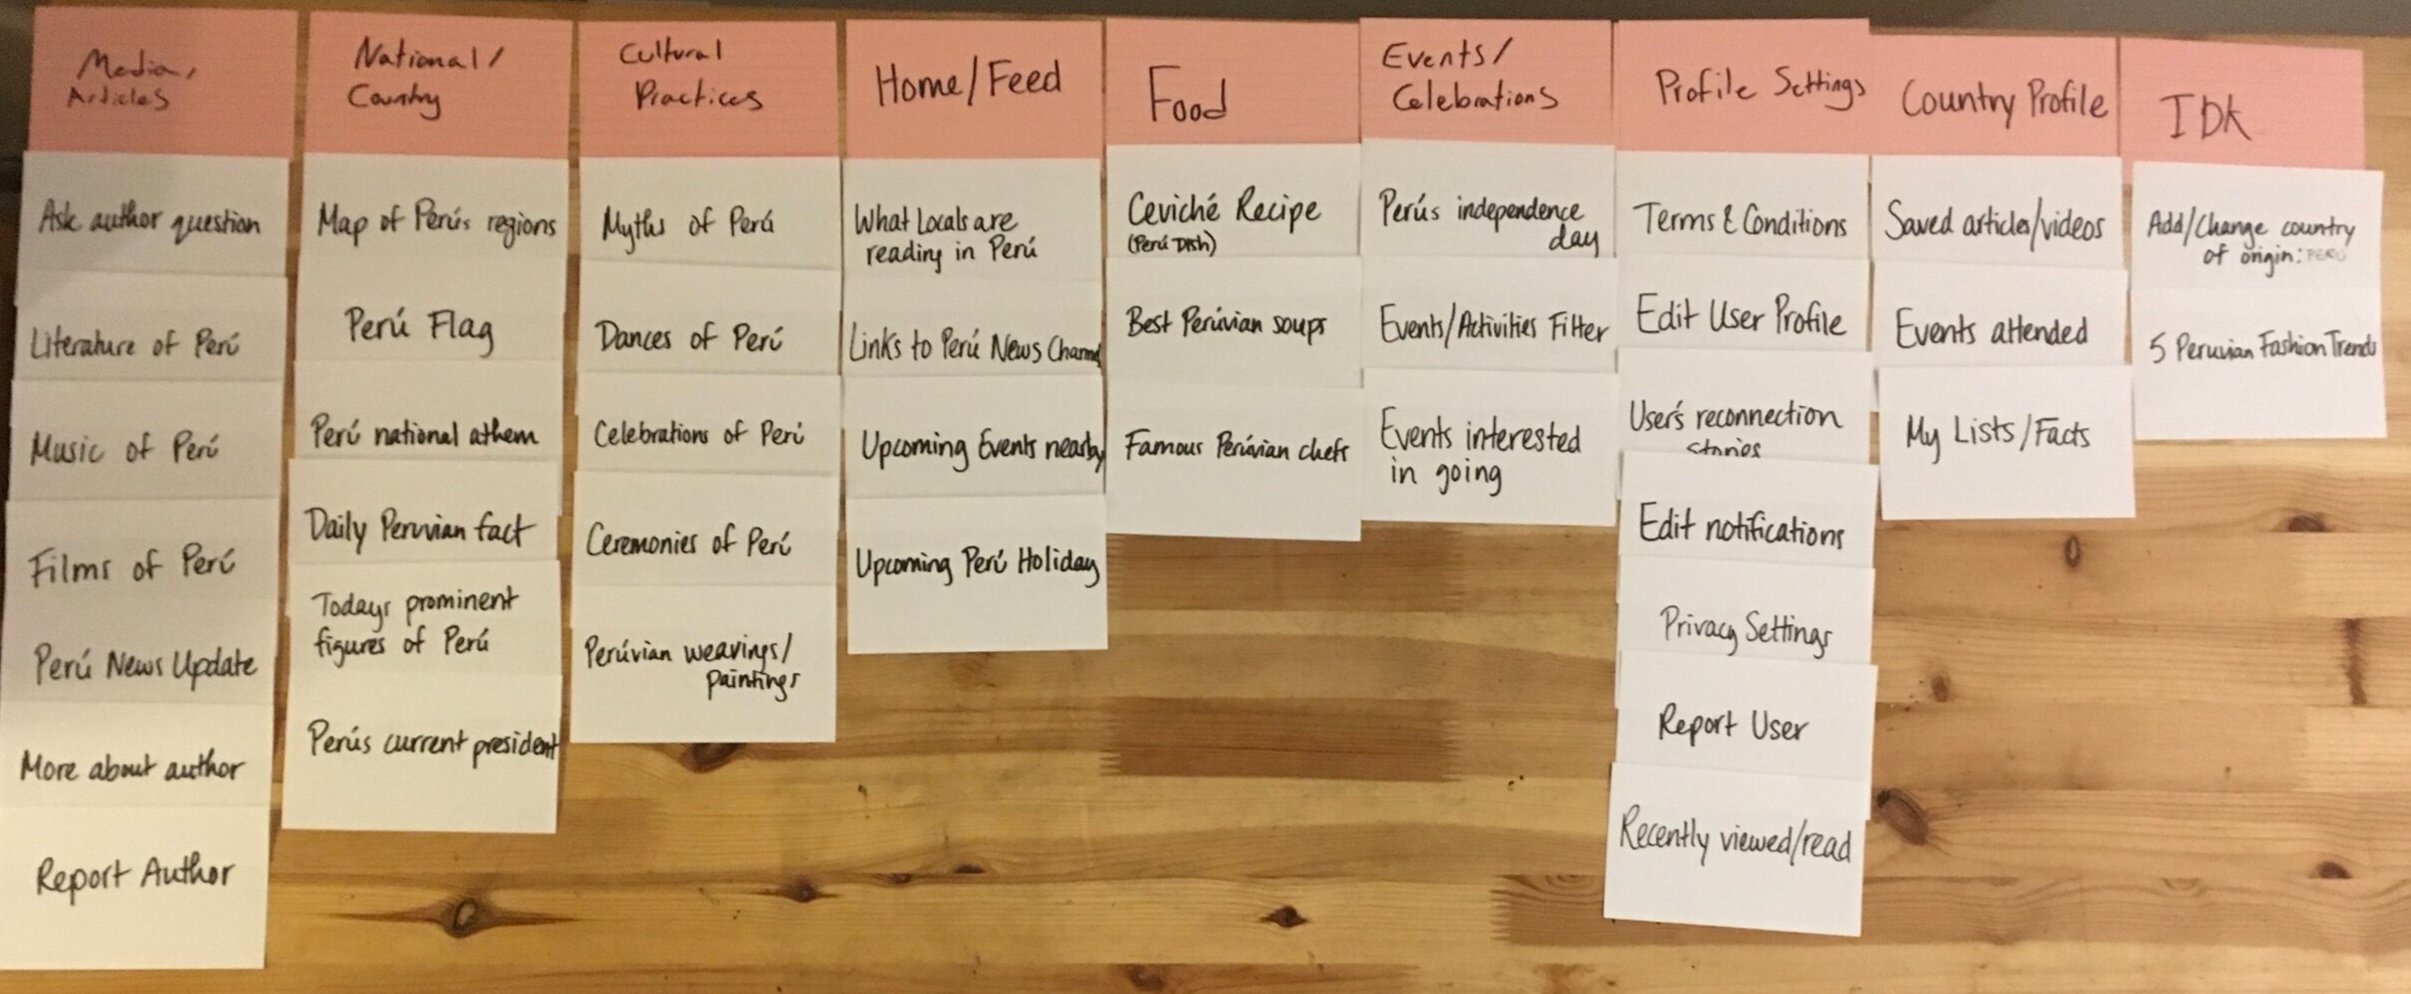 Media/
Articles
Ask author question
Literature of Perú
Music of Perú
Films of Perú
Perú News Update
More about author
Report Author
National/
Country
Map of Perús regions
Perú Flag
Perú national athem
Daily Peruvian fact
Todays prominent
figures of Perú
Perús current president
Cultural
Practices
Myths of Perú
Dances of Perú
Celebrations of Perú
Ceremonies of Perú
Perúvian weavings/
paintings
Home/Feed
What Locals are
reading in Perú
Links to Perú News Channel
Upcoming Events nearby
Upcoming Perú Holiday
Food
Ceviché Recipe
(Perú Dish)
Best Perúvian soups
Famous Perúvian chefs
Events/
Celebrations
Perús independence
day
Events/Activities Filter
Events interested
in going
Profile Settings
Terms & Conditions
Edit User Profile
User's reconnection
stories
Edit notifications
Privacy Settings
Report User
Recently viewed/read
Country Profile
Saved articles/videos
Events attended
My Lists/Facts
IDK
Add/Change country
of origin: PERÚ
5 Peruvian Fashion Trends